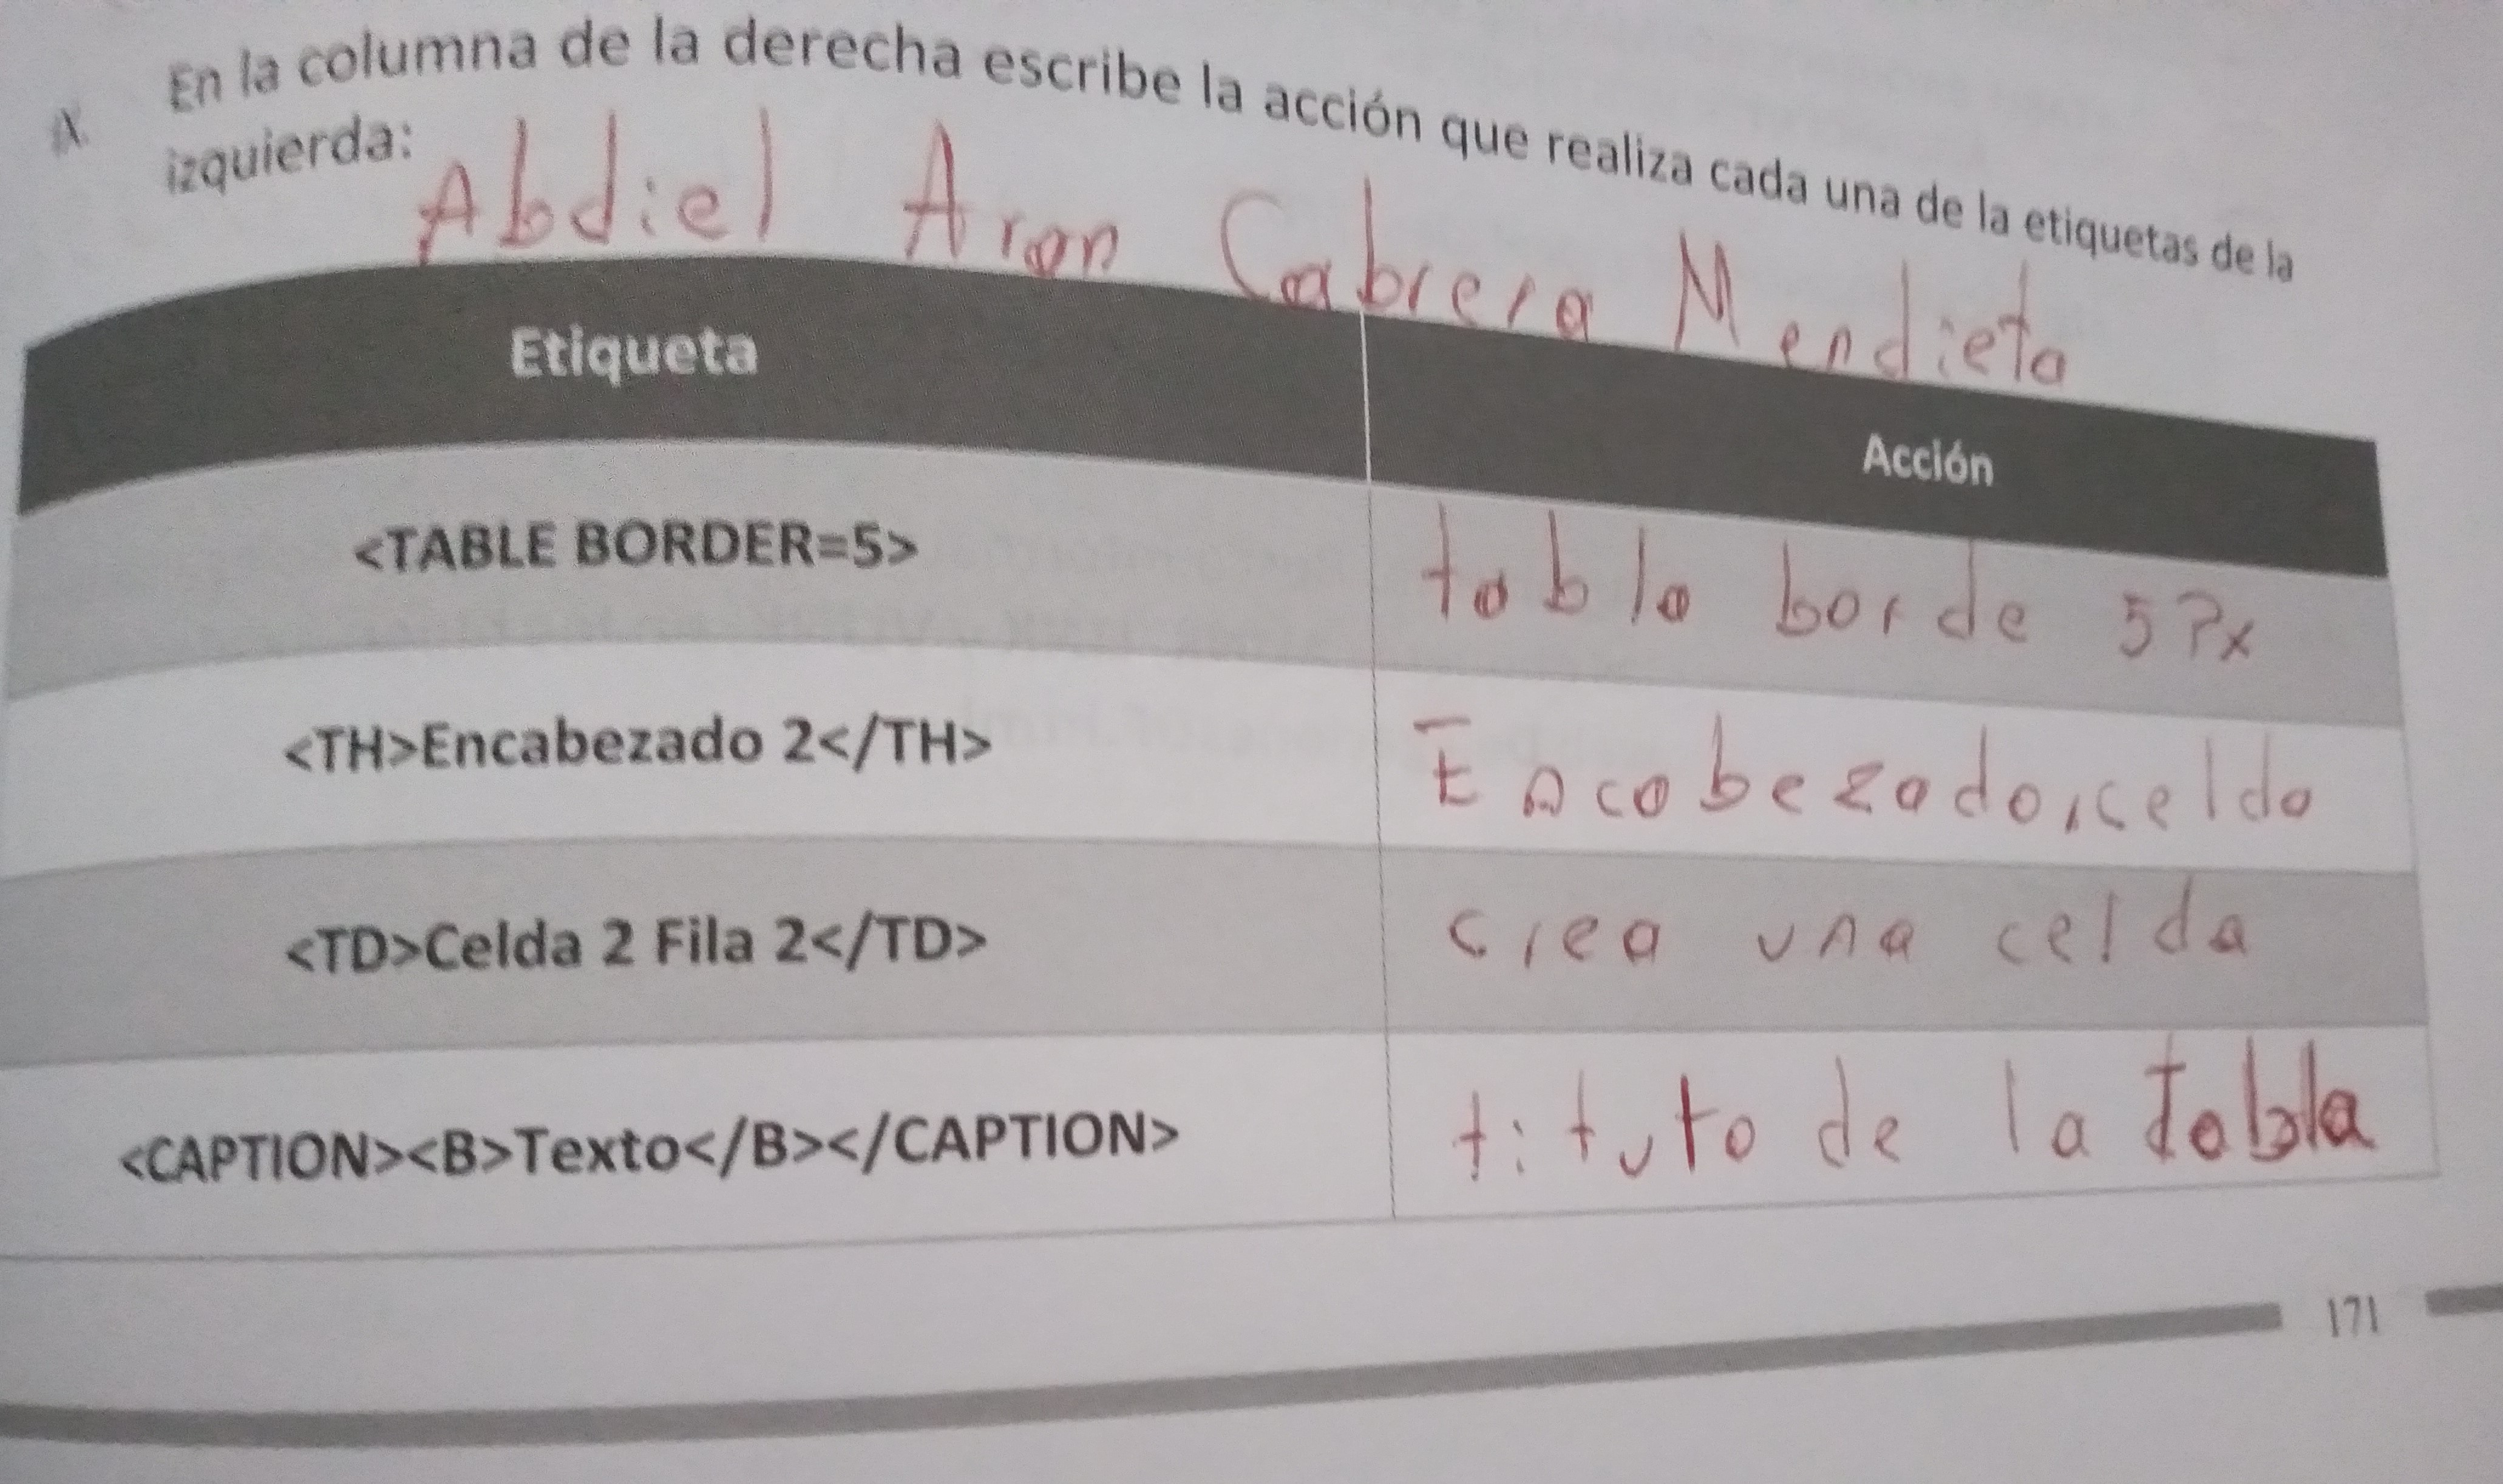 IX. En la columna de la derecha escribe la acción que realiza cada una de la etiquetas de la
izquierda:
Abdiel Aron Cabrera Mendieta
Etiqueta Acción
<TABLE BORDER=5> tabla borde 5 Px
<TH>Encabezado 2</TH> Encabezado, celda
<TD>Celda 2 Fila 2</TD> crea una celda
<CAPTION><B>Texto</B></CAPTION> tituto de la tabla
171